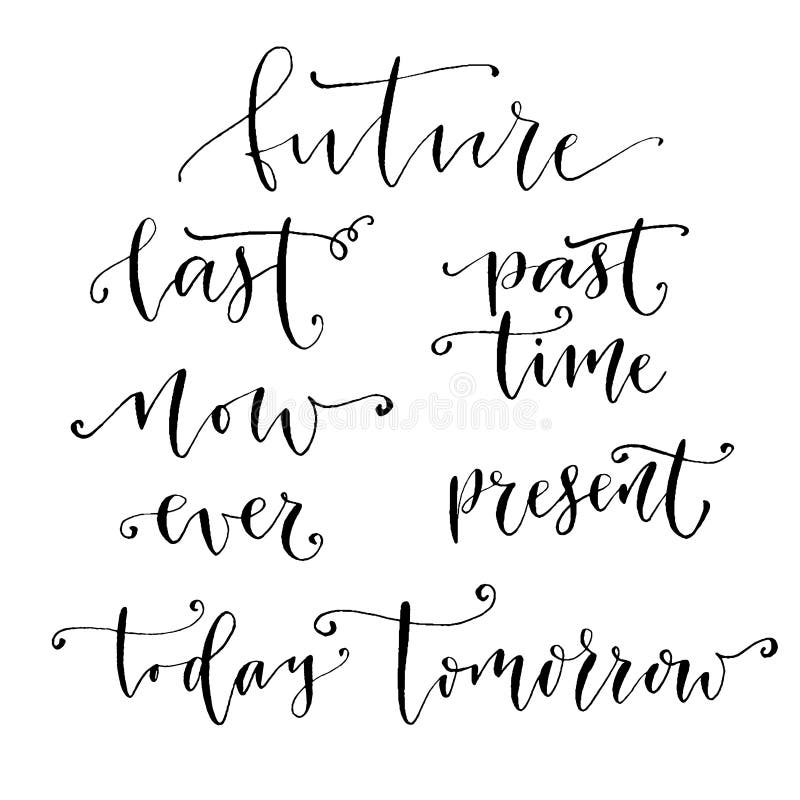 future
last
past
time
now
ever
present
today tomorrow
dreamstime